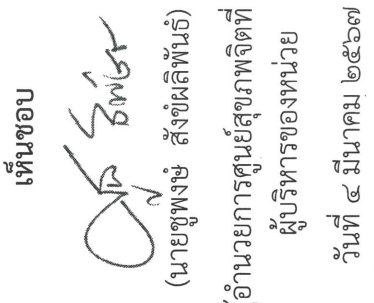 เห็นชอบ
(นายชูพงษ์ สังข์ผลิพันธ์)
อำนวยการศูนย์สุขภาพจิตที่
ผู้บริหารของหน่วย
วันที่ ๔ มีนาคม ๒๕๖๗